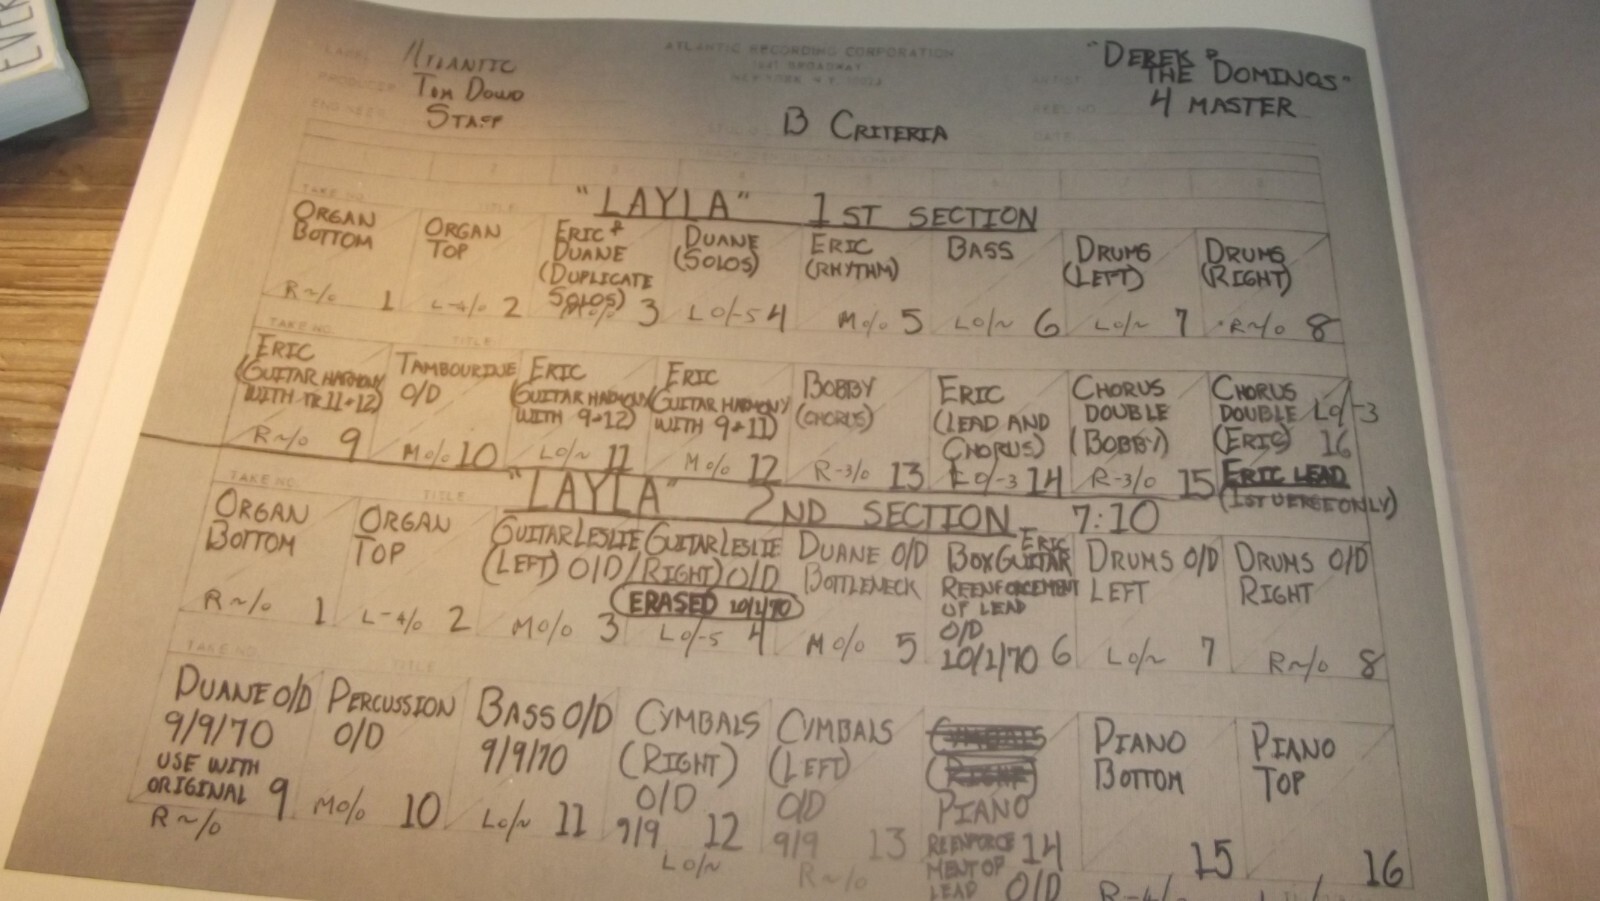 EVER
LABEL
ATLANTIC
PRODUCER
TOM DOWD
ENGINEER
STAFF
ATLANTIC RECORDING CORPORATION
1841 BROADWAY
NEW YORK, N.Y. 10023
B CRITERIA
ARTIST
"DEREK &
THE DOMINOS"
4 MASTER
DATE
TAKE NO.
TITLE
"LAYLA" 1ST SECTION
ORGAN
BOTTOM
R~/0 1
ORGAN
TOP
L-4/0 2
ERIC &
DUANE
(DUPLICATE
SOLOS)
3
DUANE
(SOLOS)
L0/-5 4
ERIC
(RHYTHM)
M0/0 5
BASS
L0/~ 6
DRUMS
(LEFT)
L0/~ 7
DRUMS
(RIGHT)
R~/0 8
TAKE NO.
TITLE
ERIC
(GUITAR HARMONY
WITH TR 11+12)
R~/0 9
TAMBOURINE
O/D
M0/0 10
ERIC
(GUITAR HARMONY
WITH 9+12)
L0/~ 11
ERIC
(GUITAR HARMONY
WITH 9+11)
M0/0 12
BOBBY
(CHORUS)
R-3/0 13
ERIC
(LEAD AND
CHORUS)
L0/-3 14
CHORUS
DOUBLE
(BOBBY)
R-3/0 15
CHORUS
DOUBLE L0/-3
(ERIC) 16
ERIC LEAD
(1ST VERSE ONLY)
TAKE NO.
TITLE
"LAYLA" 2ND SECTION 7:10
ORGAN
BOTTOM
R~/0 1
ORGAN
TOP
L-4/0 2
GUITAR LESLIE
(LEFT) O/D
M0/0 3
GUITAR LESLIE
(RIGHT) O/D
ERASED 10/1/70
L0/-5 4
DUANE O/D
BOTTLENECK
M0/0 5
ERIC
BOX GUITAR
REENFORCEMENT
OF LEAD
O/D
10/1/70 6
DRUMS O/D
LEFT
L0/~ 7
DRUMS O/D
RIGHT
R~/0 8
TAKE NO.
TITLE
DUANE O/D
9/9/70
USE WITH
ORIGINAL 9
R~/0
PERCUSSION
O/D
M0/0 10
BASS O/D
9/9/70
L0/~ 11
CYMBALS
(RIGHT)
O/D
9/9 12
L0/~
CYMBALS
(LEFT)
O/D
9/9 13
R~/0
PIANO
REENFORCE 14
MENT OF
LEAD O/D
PIANO
BOTTOM
15
R-4/0
PIANO
TOP
16